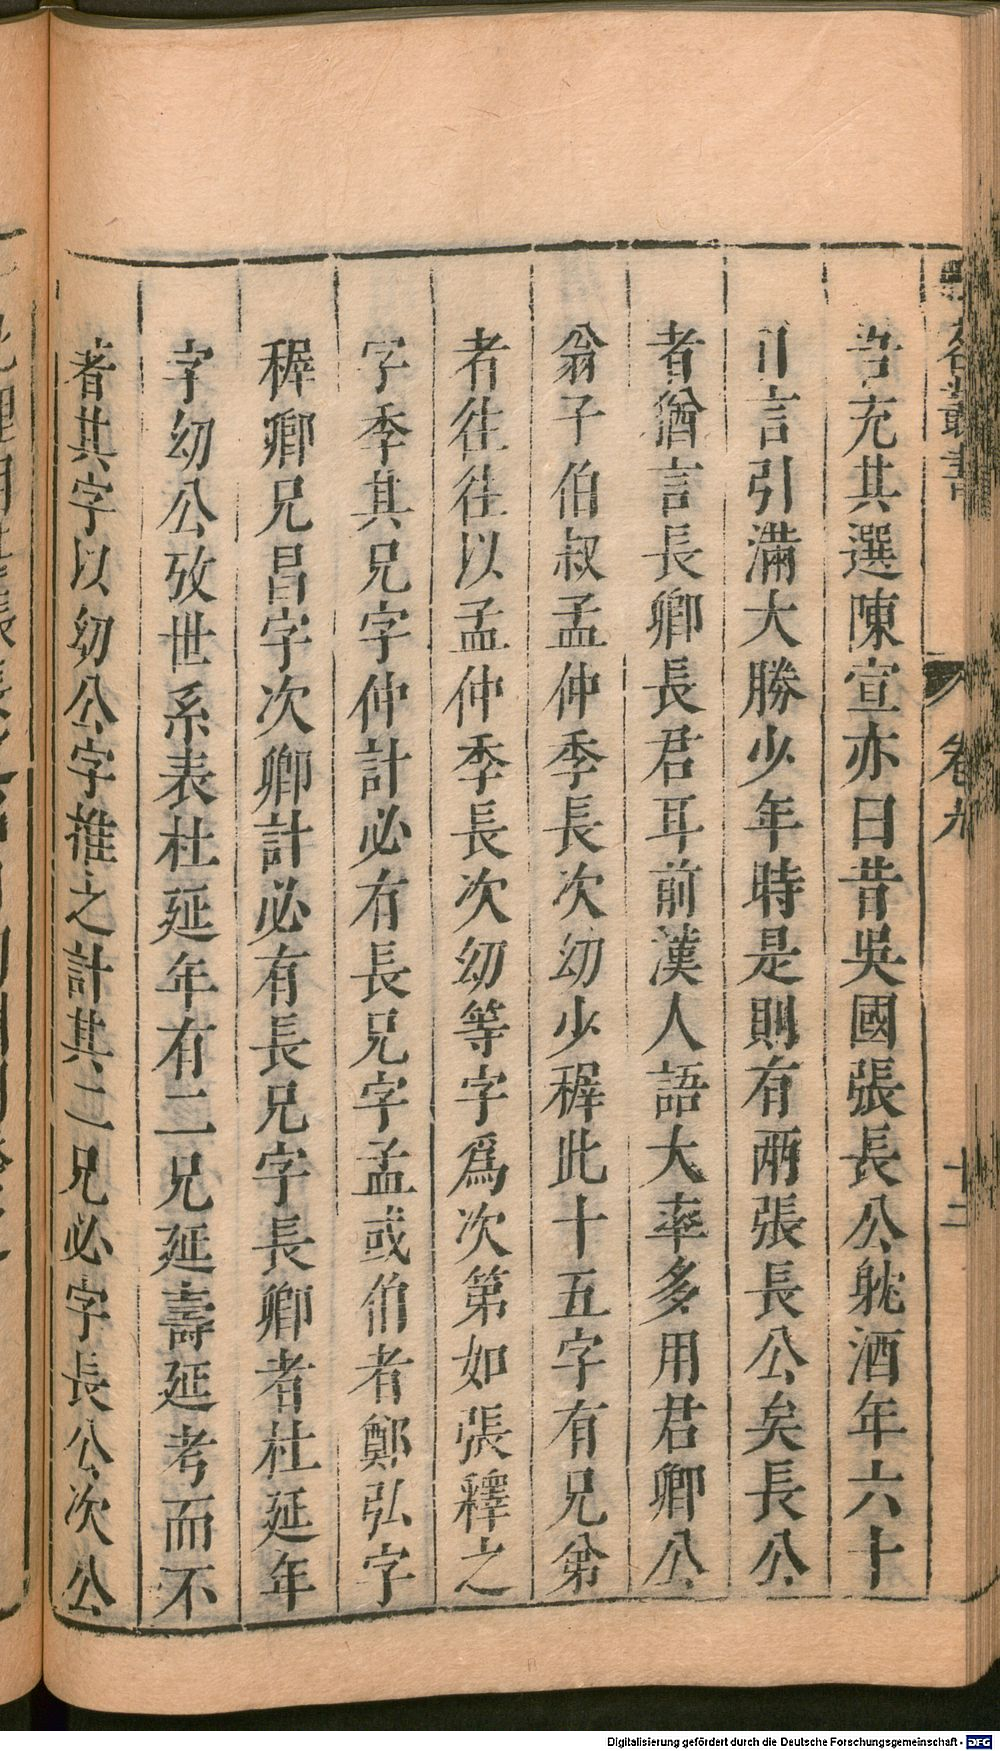 叢書
卷九
十二
充其選陳宣亦曰昔吳國張長公躭酒年六十
言引滿大勝少年時是則有兩張長公矣長公
者猶言長卿長君耳前漢人語大率多用君卿公
翁子伯叔孟仲季長次幼少穉此十五字有兄弟
者往往以孟仲季長次幼等字爲次第如張釋之
字季其兄字仲計必有長兄字孟或伯者鄭弘字
穉卿兄昌字次卿計必有長兄字長卿者杜延年
字幼公攷世系表杜延年有二兄延壽延考而不
著其字以幼公字推之計其二兄必字長公次公
Digitalisierung gefördert durch die Deutsche Forschungsgemeinschaft - DFG